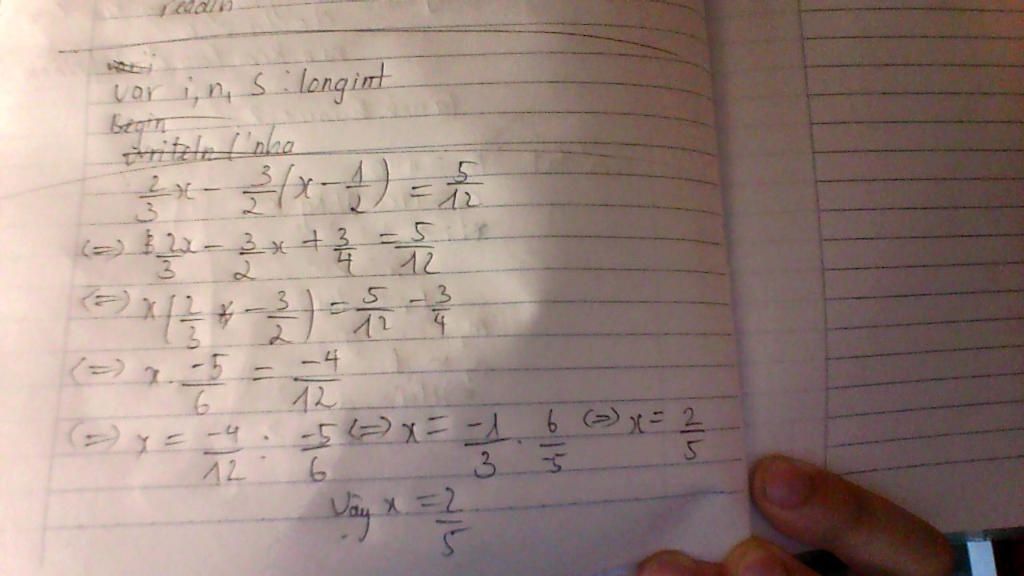 readln
var i, n, S : longint
begin
writeln ('nha
2/3 x - 3/2 (x - 1/2) = 5/12
(=) 2x/3 - 3/2 x + 3/4 = 5/12
(=) x (2/3 - 3/2) = 5/12 - 3/4
(=) x . -5/6 = -4/12
(=) x = -4/12 : -5/6 (=) x = -1/3 . 6/-5 (=) x = 2/5
Vậy x = 2/5